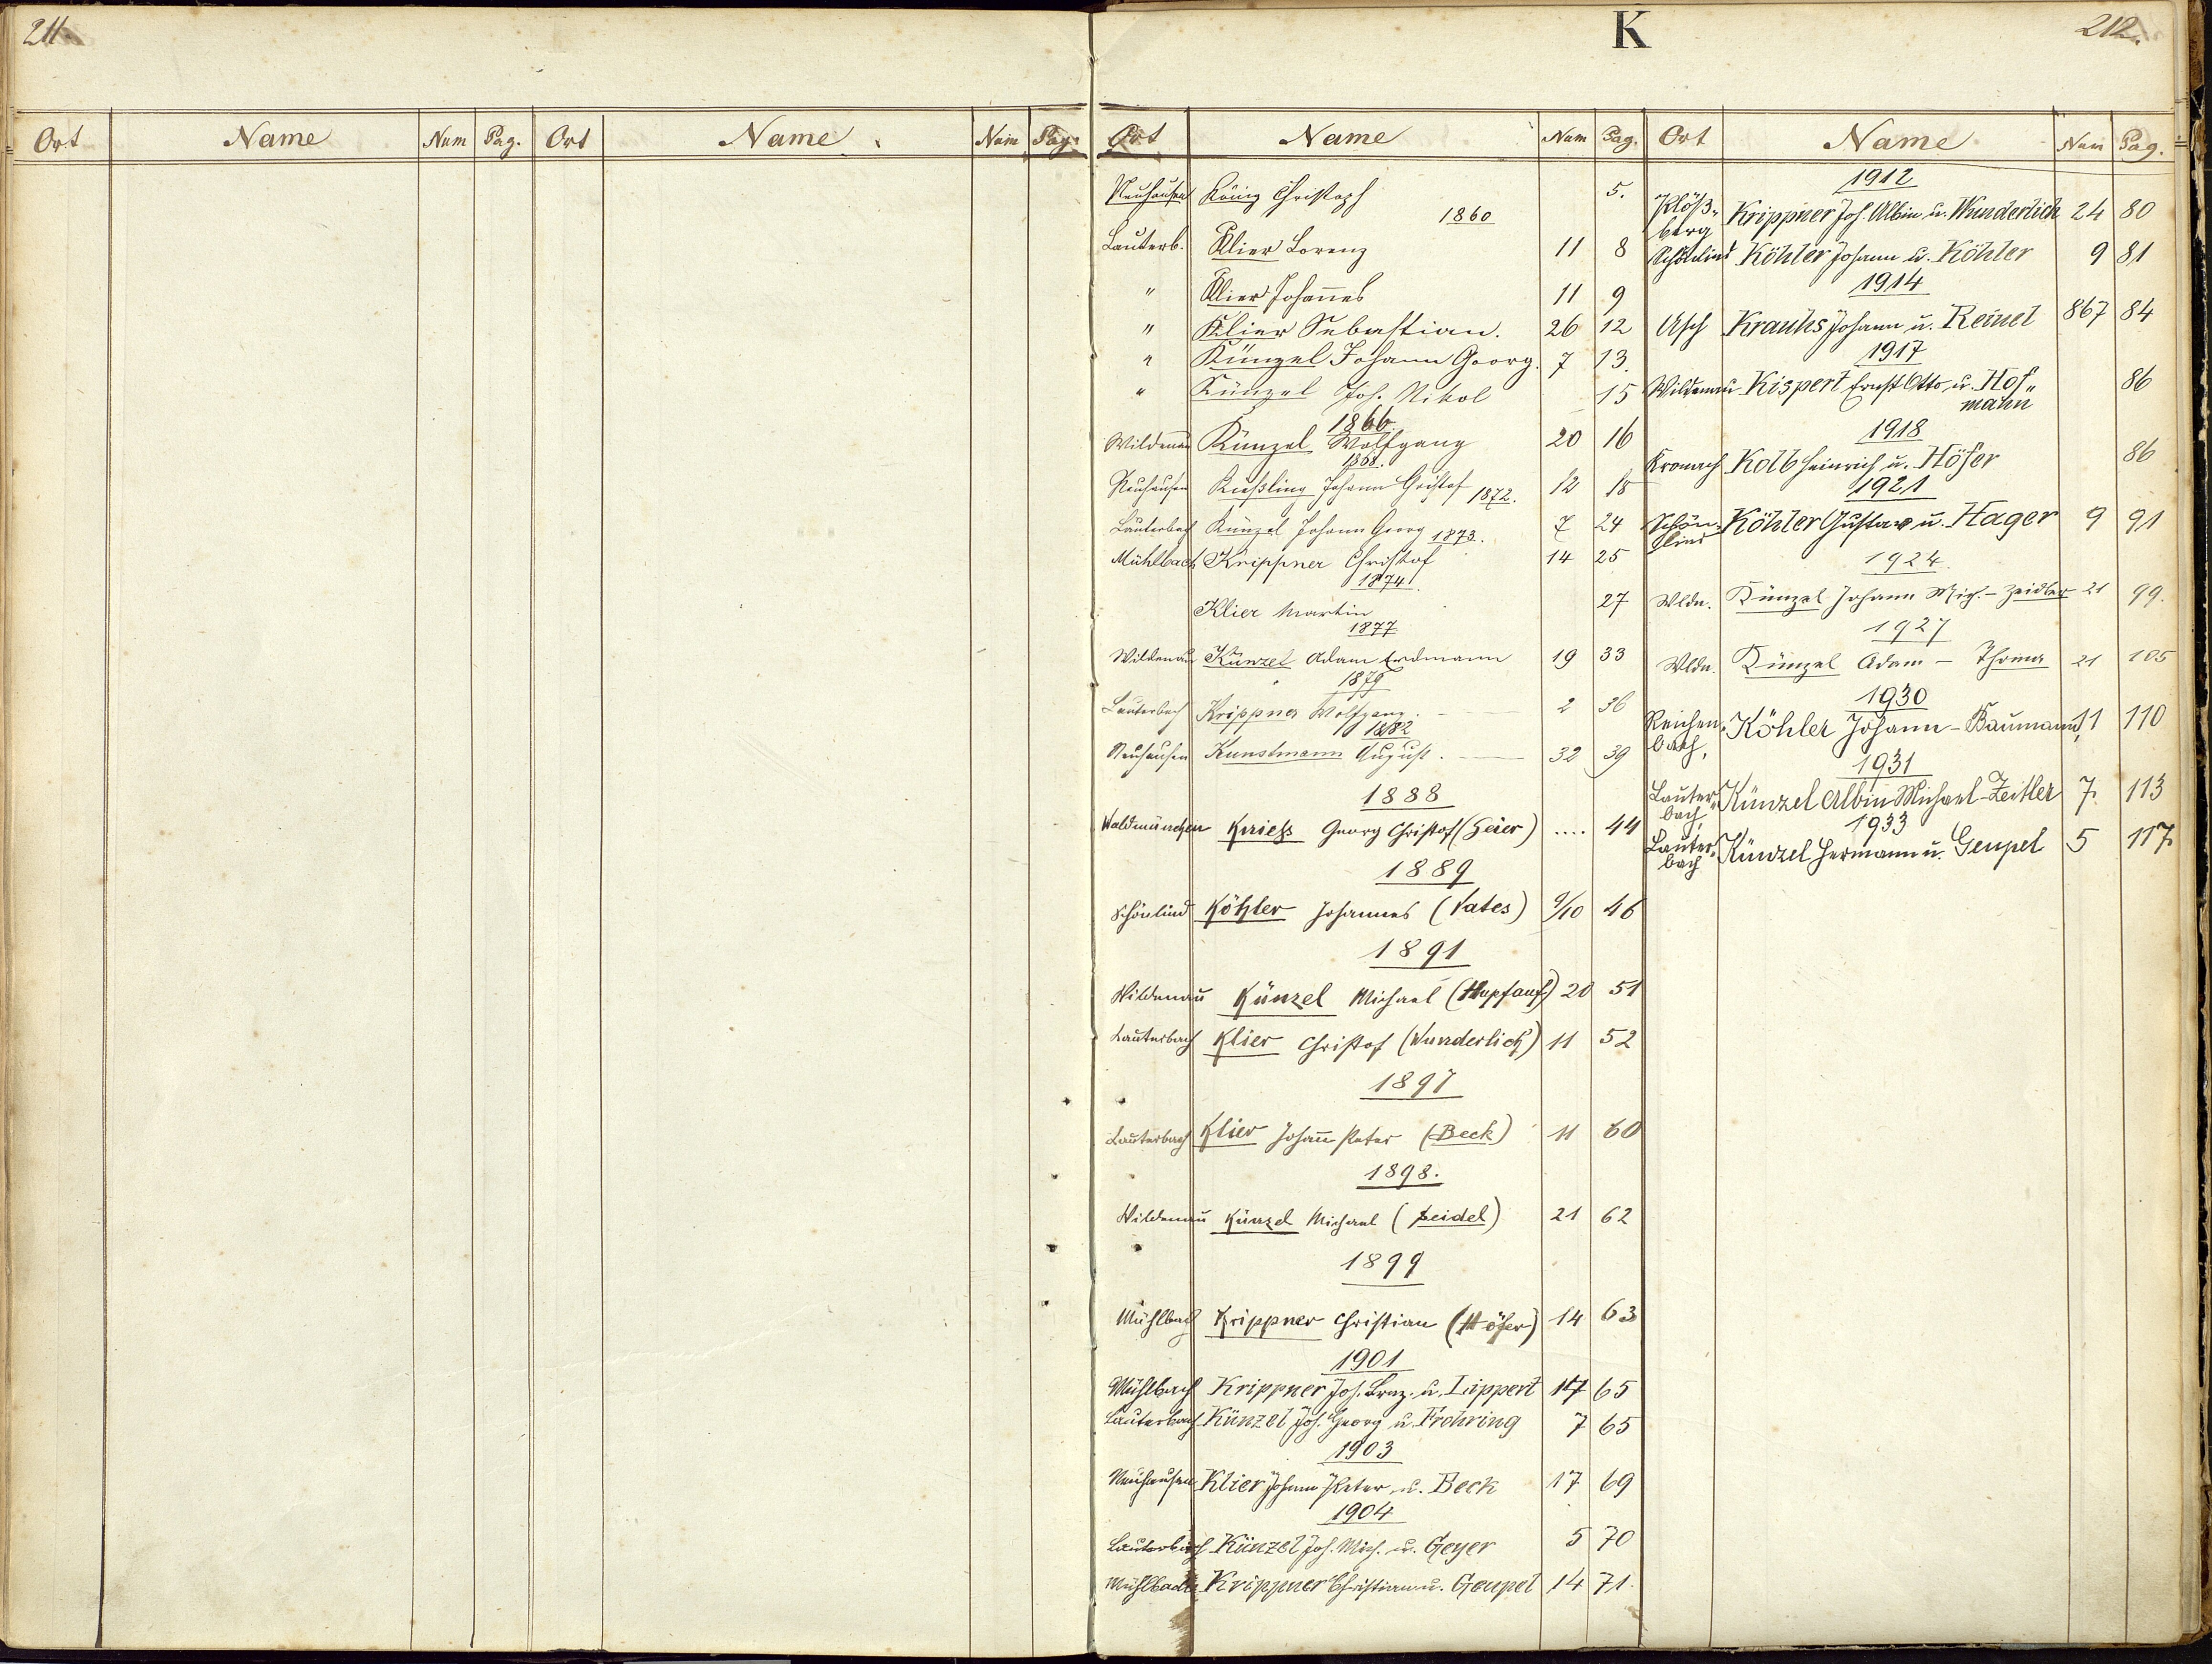 211.
Ort Name Num Pag. Ort Name Num Pag.
K
212.
Ort Name Num Pag.
Neuhausen König Christoph 5.
1860
Lauterb. Klier Lorenz 11 8
" Klier Johannes 11 9
" Klier Sebastian. 26 12
" Künzel Johann Georg. 7 13.
" Künzel Joh. Nikol 15
1866.
Wildenau Künzel Wolfgang 20 16
1868.
Neuhausen Kießling Johann Christof 12 18
1872.
Lauterbach Künzel Johann Georg 7 24
1873.
Mühlbach Krippner Christof 14 25
1874.
Klier Martin 27
1877
Wildenau Künzel Adam Erdmann 19 33
1879
Lauterbach Krippner Wolfgang. 2 36
1882
Neuhausen Kunstmann August. 32 39
1888
Waldmünchen Georg Christof (Geier) .... 44
1889
Schönlind Köhler Johannes (Vates) 9/10 46
1891
Wildenau Künzel Michael (Hupfauf) 20 51
Lauterbach Klier Christof (Wunderlich) 11 52
1897
Lauterbach Klier Johann Peter (Beck) 11 60
1898.
Wildenau Künzel Michael (Seidel) 21 62
1899
Mühlbach Krippner Christian (Höfer) 14 63
1901
Mühlbach Krippner Joh. Lrnz. u. Lippert 17 65
Lauterbach Künzel Joh. Georg u. Frohring 7 65
1903
Neuhausen Klier Johann Peter u. Beck 17 69
1904
Lauterbach Künzel Joh. Mich. u. Geyer 5 70
Mühlbach Krippner Christian u. Geupel 14 71.
Ort Name Num Pag.
1912
Klöß-
berg Krippner Joh. Albin u. Wunderlich 24 80
Schönlind Köhler Johann u. Köhler 9 81
1914
Asch Krauhs Johann u. Reinel 867 84
1917
Wildenau Kispert Ernst Otto u. Hof„
mann 86
1918
Kronach Kolb Heinrich u. Höfer 86
1921
Schön-
lind Köhler Gustav u. Hager 9 91
1924.
Wldn. Künzel Johann Mich. - Zeidler 21 99.
1927
Wldn. Künzel Adam - Thoma 21 105
1930
Reichen„
bach, Köhler Johann - Baumann, 11 110
1931
Lauter„
bach, Künzel Albin Michael - Zeitler 7. 113
1933
Lauter„
bach Künzel Hermann u. Geupel 5 117